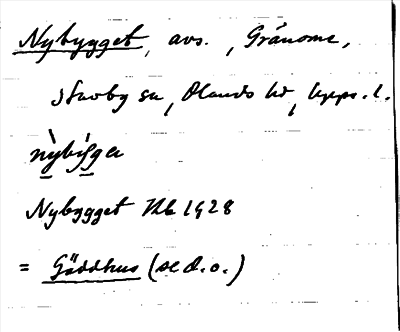 Nybygget, avs., Gränome,
Stavby sn, Olands hd, Upps. l.
nỳbíg̀ga
Nybygget Hb 1928
= Gäddhus (se d.o.)